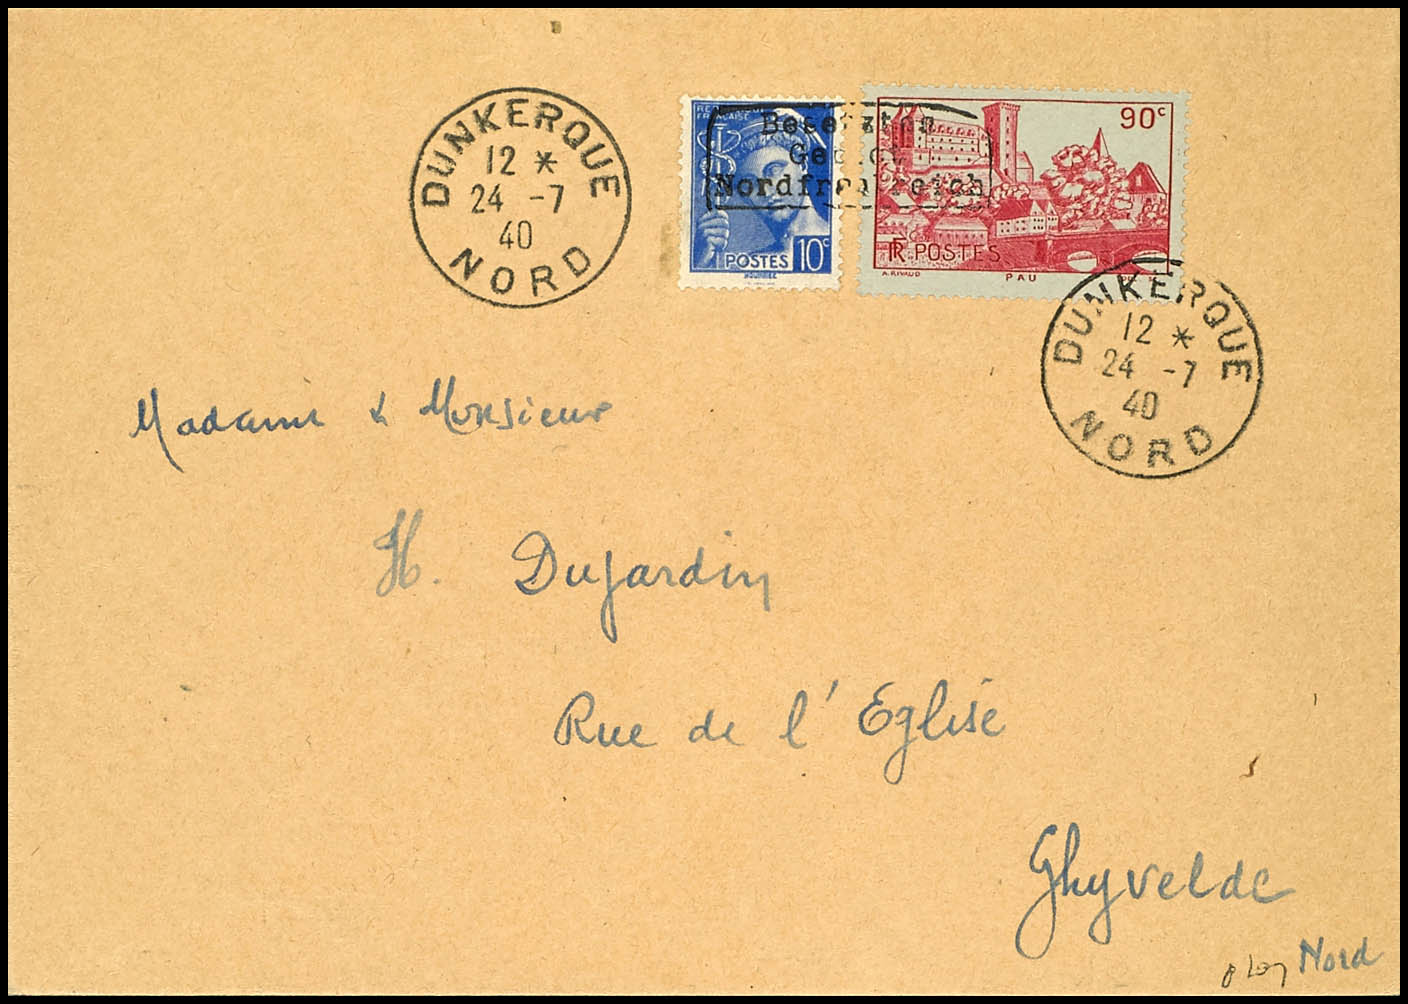 DUNKERQUE
12 *
24 -7
40
NORD
FRANÇAISE
POSTES 10c
Besetztes
Gebiet
Nordfrankreich
90c
RF POSTES
A. RIVAUD PAU
DUNKERQUE
12 *
24 -7
40
NORD
Madame & Monsieur
H. Dujardin
Rue de l'Eglise
Ghyvelde
Nord